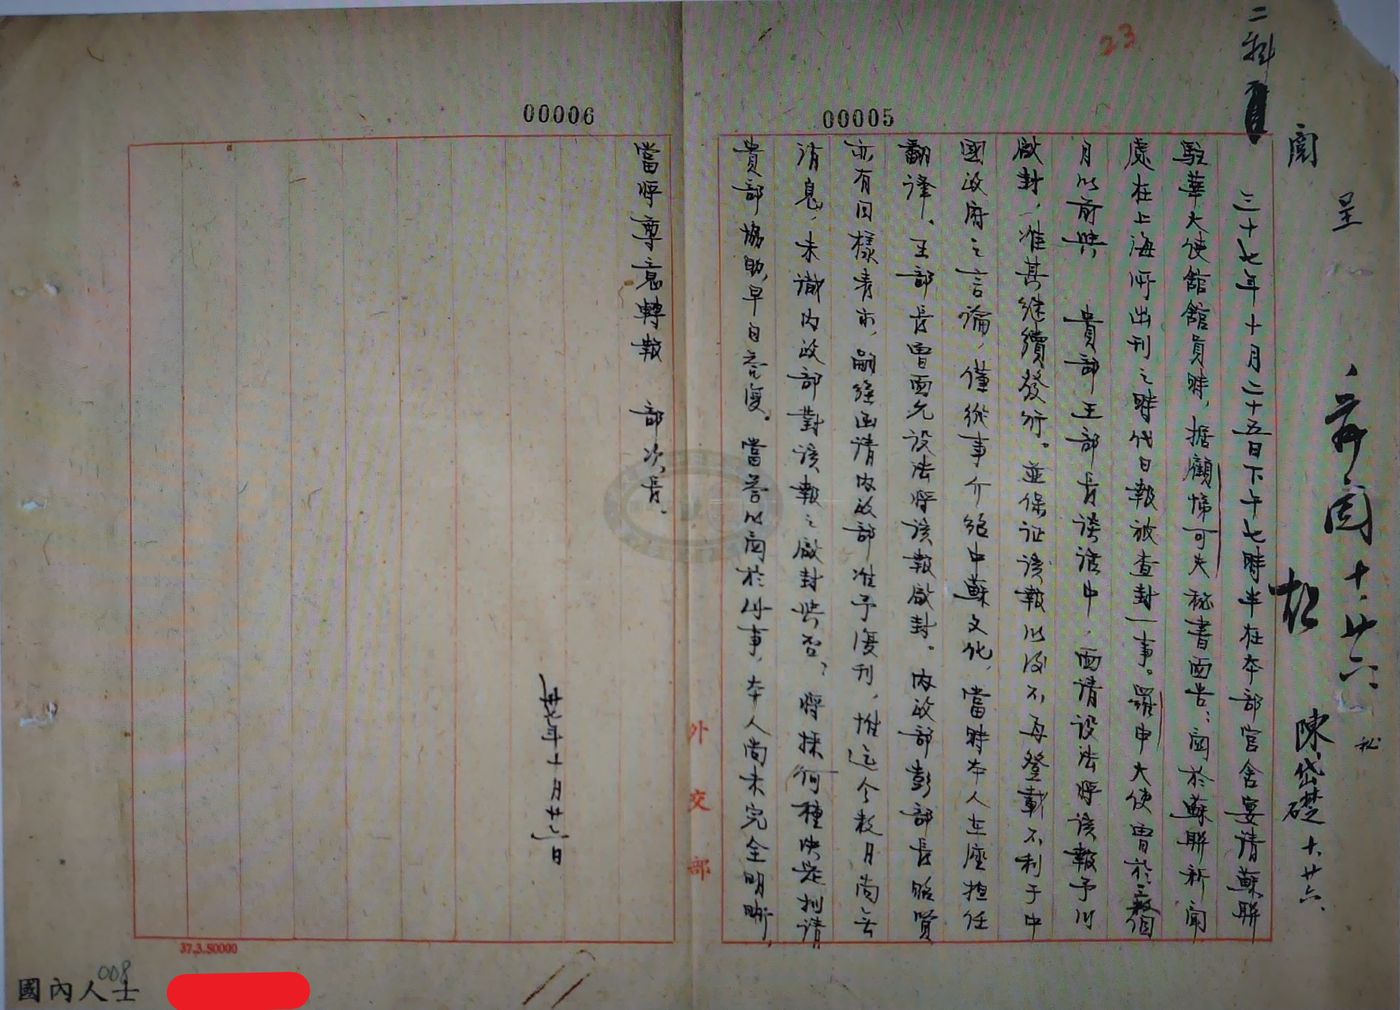 二科
23
00005
00006
呈
閱
閱 十、廿六、
陳岱礎 十、廿六、
三十七年十月二十五日下午七時半在本部官舍宴請蘇聯
駐華大使館館員時，據顧悌可夫秘書面告：關於蘇聯新聞
處在上海所出刊之時代日報被查封一事。羅申大使曾於數個
月以前與 貴部王部長談話中，面請設法將該報予以
啟封，准其繼續發行。並保证該報以後不再登載不利于中
國政府之言論，僅從事介紹中蘇文化，當時本人在座担任
翻譯。王部長曾面允設法將該報啟封。內政部彭部長昭賢
亦有同樣表示，嗣經函請內政部准予復刊，惟迄今數月尚無
消息，未識內政部對該報之啟封與否，將採何種決定，擬請
貴部協助，早日答復。當答以關於此事，本人尚未完全明晰，
當將尊意轉報 部次長。
卅七年十月廿六日
外交部
37.3.50000
國內人士
008